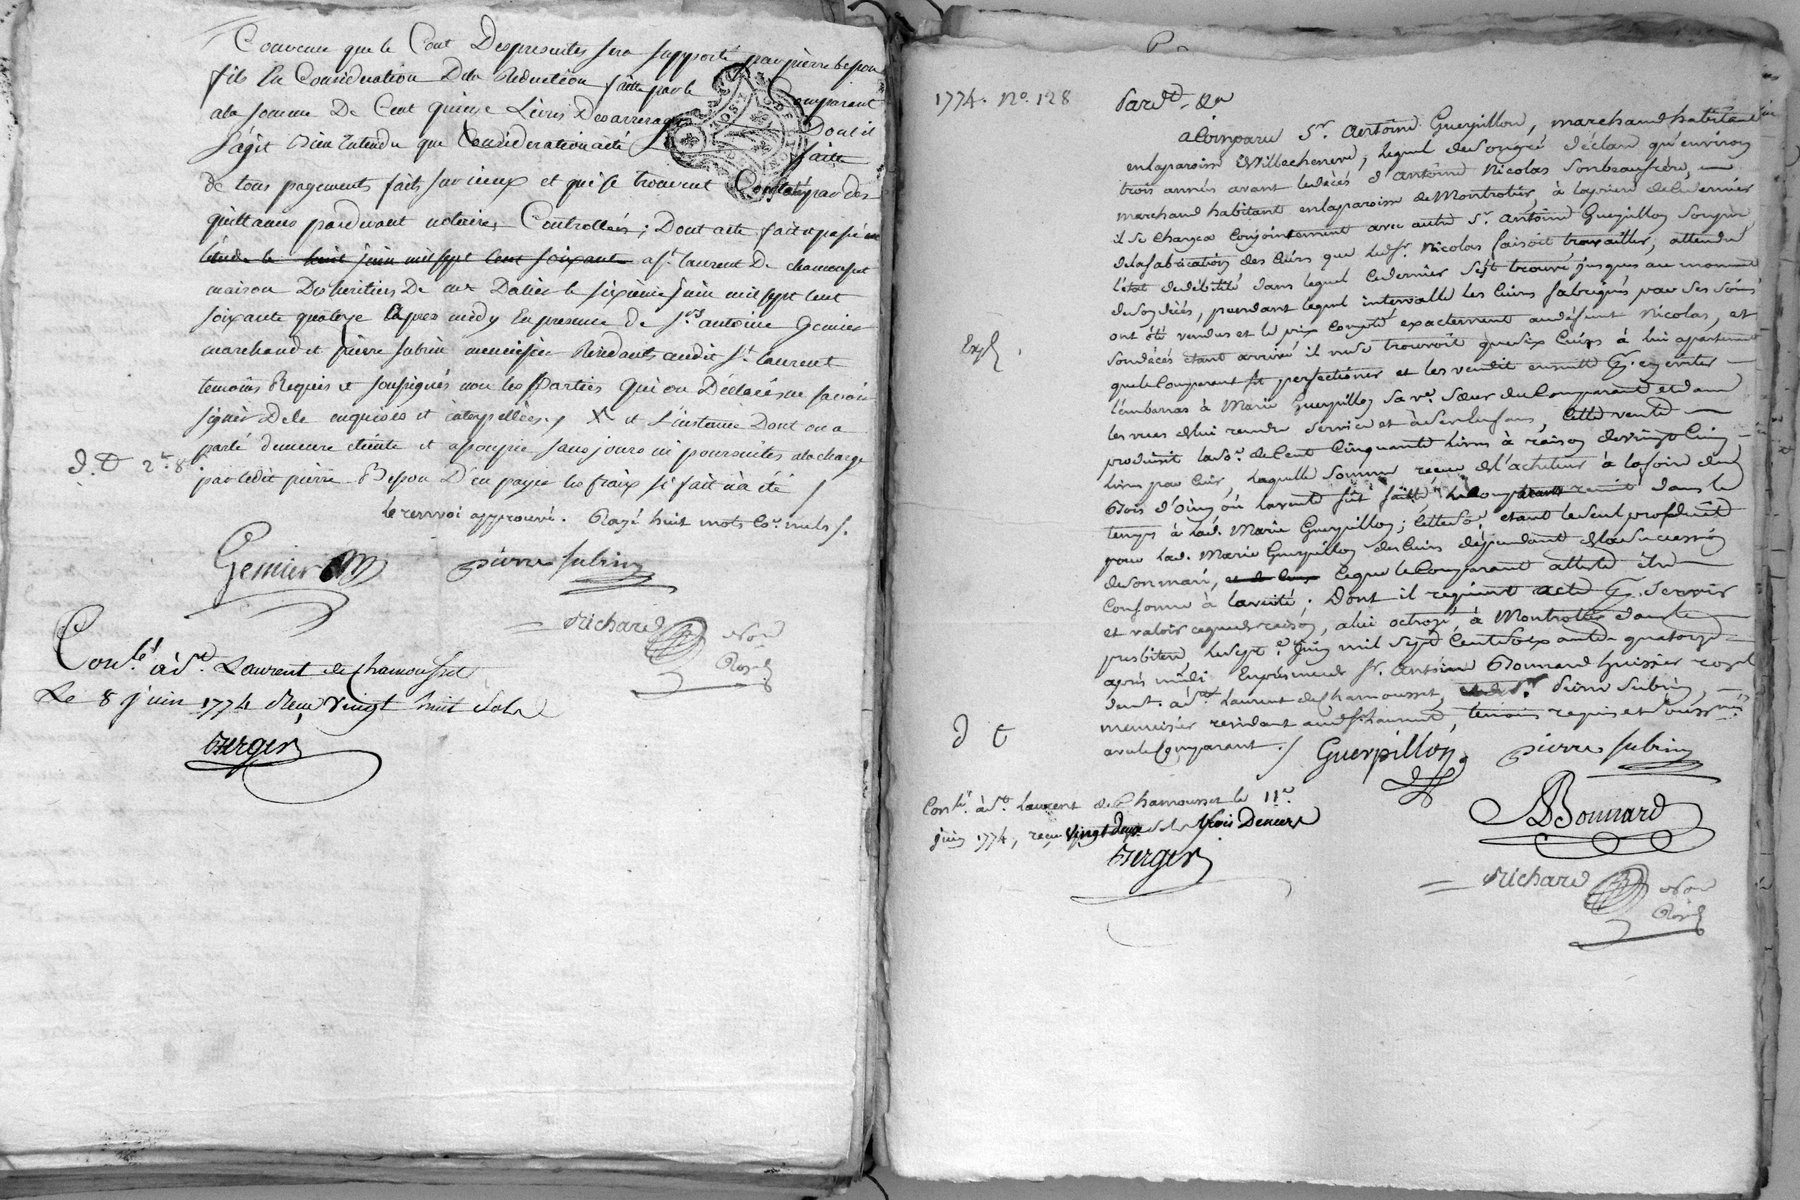 Convenu que le Cout Despresentes sera supporté par pierre besson
fils En Consideration Dela Reduction faitte par le Comparant
ala somme De Cent quinze Livres Desarrerages Dont il
s'agit Bien Entendu que Consideration a été faitte
de tous payements faits sur iceux et qui se trouvent Constatés par des
quittances pardevant notaires, Controllées; Dont acte, fait et passé
létude le huit juin mil sept cent soixante a st. laurent De chamousset
maison Des heritiers De me Dalier le sixieme Juin mil sept cent
soixante quatorze apres midy En presence de srs antoine Gemier
marchand et pierre subrin menuisier Residants audit st. laurent
temoins Requis et soussignés non les Parties Qui on Déclarés ne savoir
signer De le enquises et interpellées. / X et L'instance Dont on a
parlé demeure éteinte et assoupie sans jours ni poursuites ala charge
par ledit pierre Besson D'en payer les fraix si fait n'a été /
D. D 2s. 8
le renvoi approuvé. Rayé huit mots co. nuls /.
Gemier
pierre subrin
Richard
Nore
Royal
Conlé. à St. Laurent de Chamousset
Le 8 juin 1774 Reçu Vingt huit sols
Berger
1774. No. 128
Pardt. &a
a Comparu Sr. Antoine Guerpillon, marchand habitant
en laparoisse de Villechenève, lequel de son gré déclare qu'environ
trois années avant le décès d'Antoine Nicolas son beaufrère,
marchand habitant en laparoisse de Montrotier, à la prière de ce dernier
il se chargea conjointement avec autre Sr. Antoine Guerpillon son père
de la fabrication des cuirs que led. Sr. Nicolas faisoit travailler, attendu
l'état de débilité dans lequel ce dernier s'est trouvé jusques au moment
de son décès, pendant lequel intervalle les cuirs fabriqués par ses soins
ont été vendus et le prix compté exactement au défunt Nicolas, et
Expé.
son décès étant arrivé il ne se trouvoit que six cuirs à lui appartenant
que le Comparant fit perfectionner et les vendit ensuitte pr. en éviter
l'embarras à Marie Guerpillon sa ve. Sœur du Comparant et dans
les vues de lui rendre service et à ses enfans, cette vente
produisit la so. de cent cinquante livres à raison de vingt cinq
livres par cuir, laquelle somme reçue de l'acheteur à la foire du
Bois d'oing où la vente fut faitte, le Comparant remit dans le
temps à lad. Marie Guerpillon; cette so. étant le seul produit
pour lad. Marie Guerpillon des cuirs dépendant de la succession
de son mari, ce que le Comparant atteste être
conforme à la vérité; Dont il requiert acte pr. servir
et valoir ce que de raison, a lui octroyé, à Montrotier dans le
presbitère le sept. e Juin mil sept cent soixante quatorze
après midi En présence de Sr. Antoine Bonnard huissier royal
demt. à St. Laurent de Chamousset, et de Sr. Pierre Subrin,
menuisier residant aud. St. Laurent, témoins requis et soussignés
D C
avec le Comparant. /
Guerpillon
pierre subrin
ABonnard
Conlé. à St. Laurent de Chamousset le 11e.
juin 1774, reçu Vingt deux sols trois Deniers
Berger
Richard
Nore
Royal